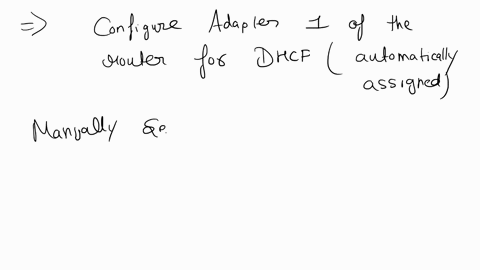 ⇒ Configure Adapter 1 of the
router for DHCF ( automatically
assigned)
Manually se